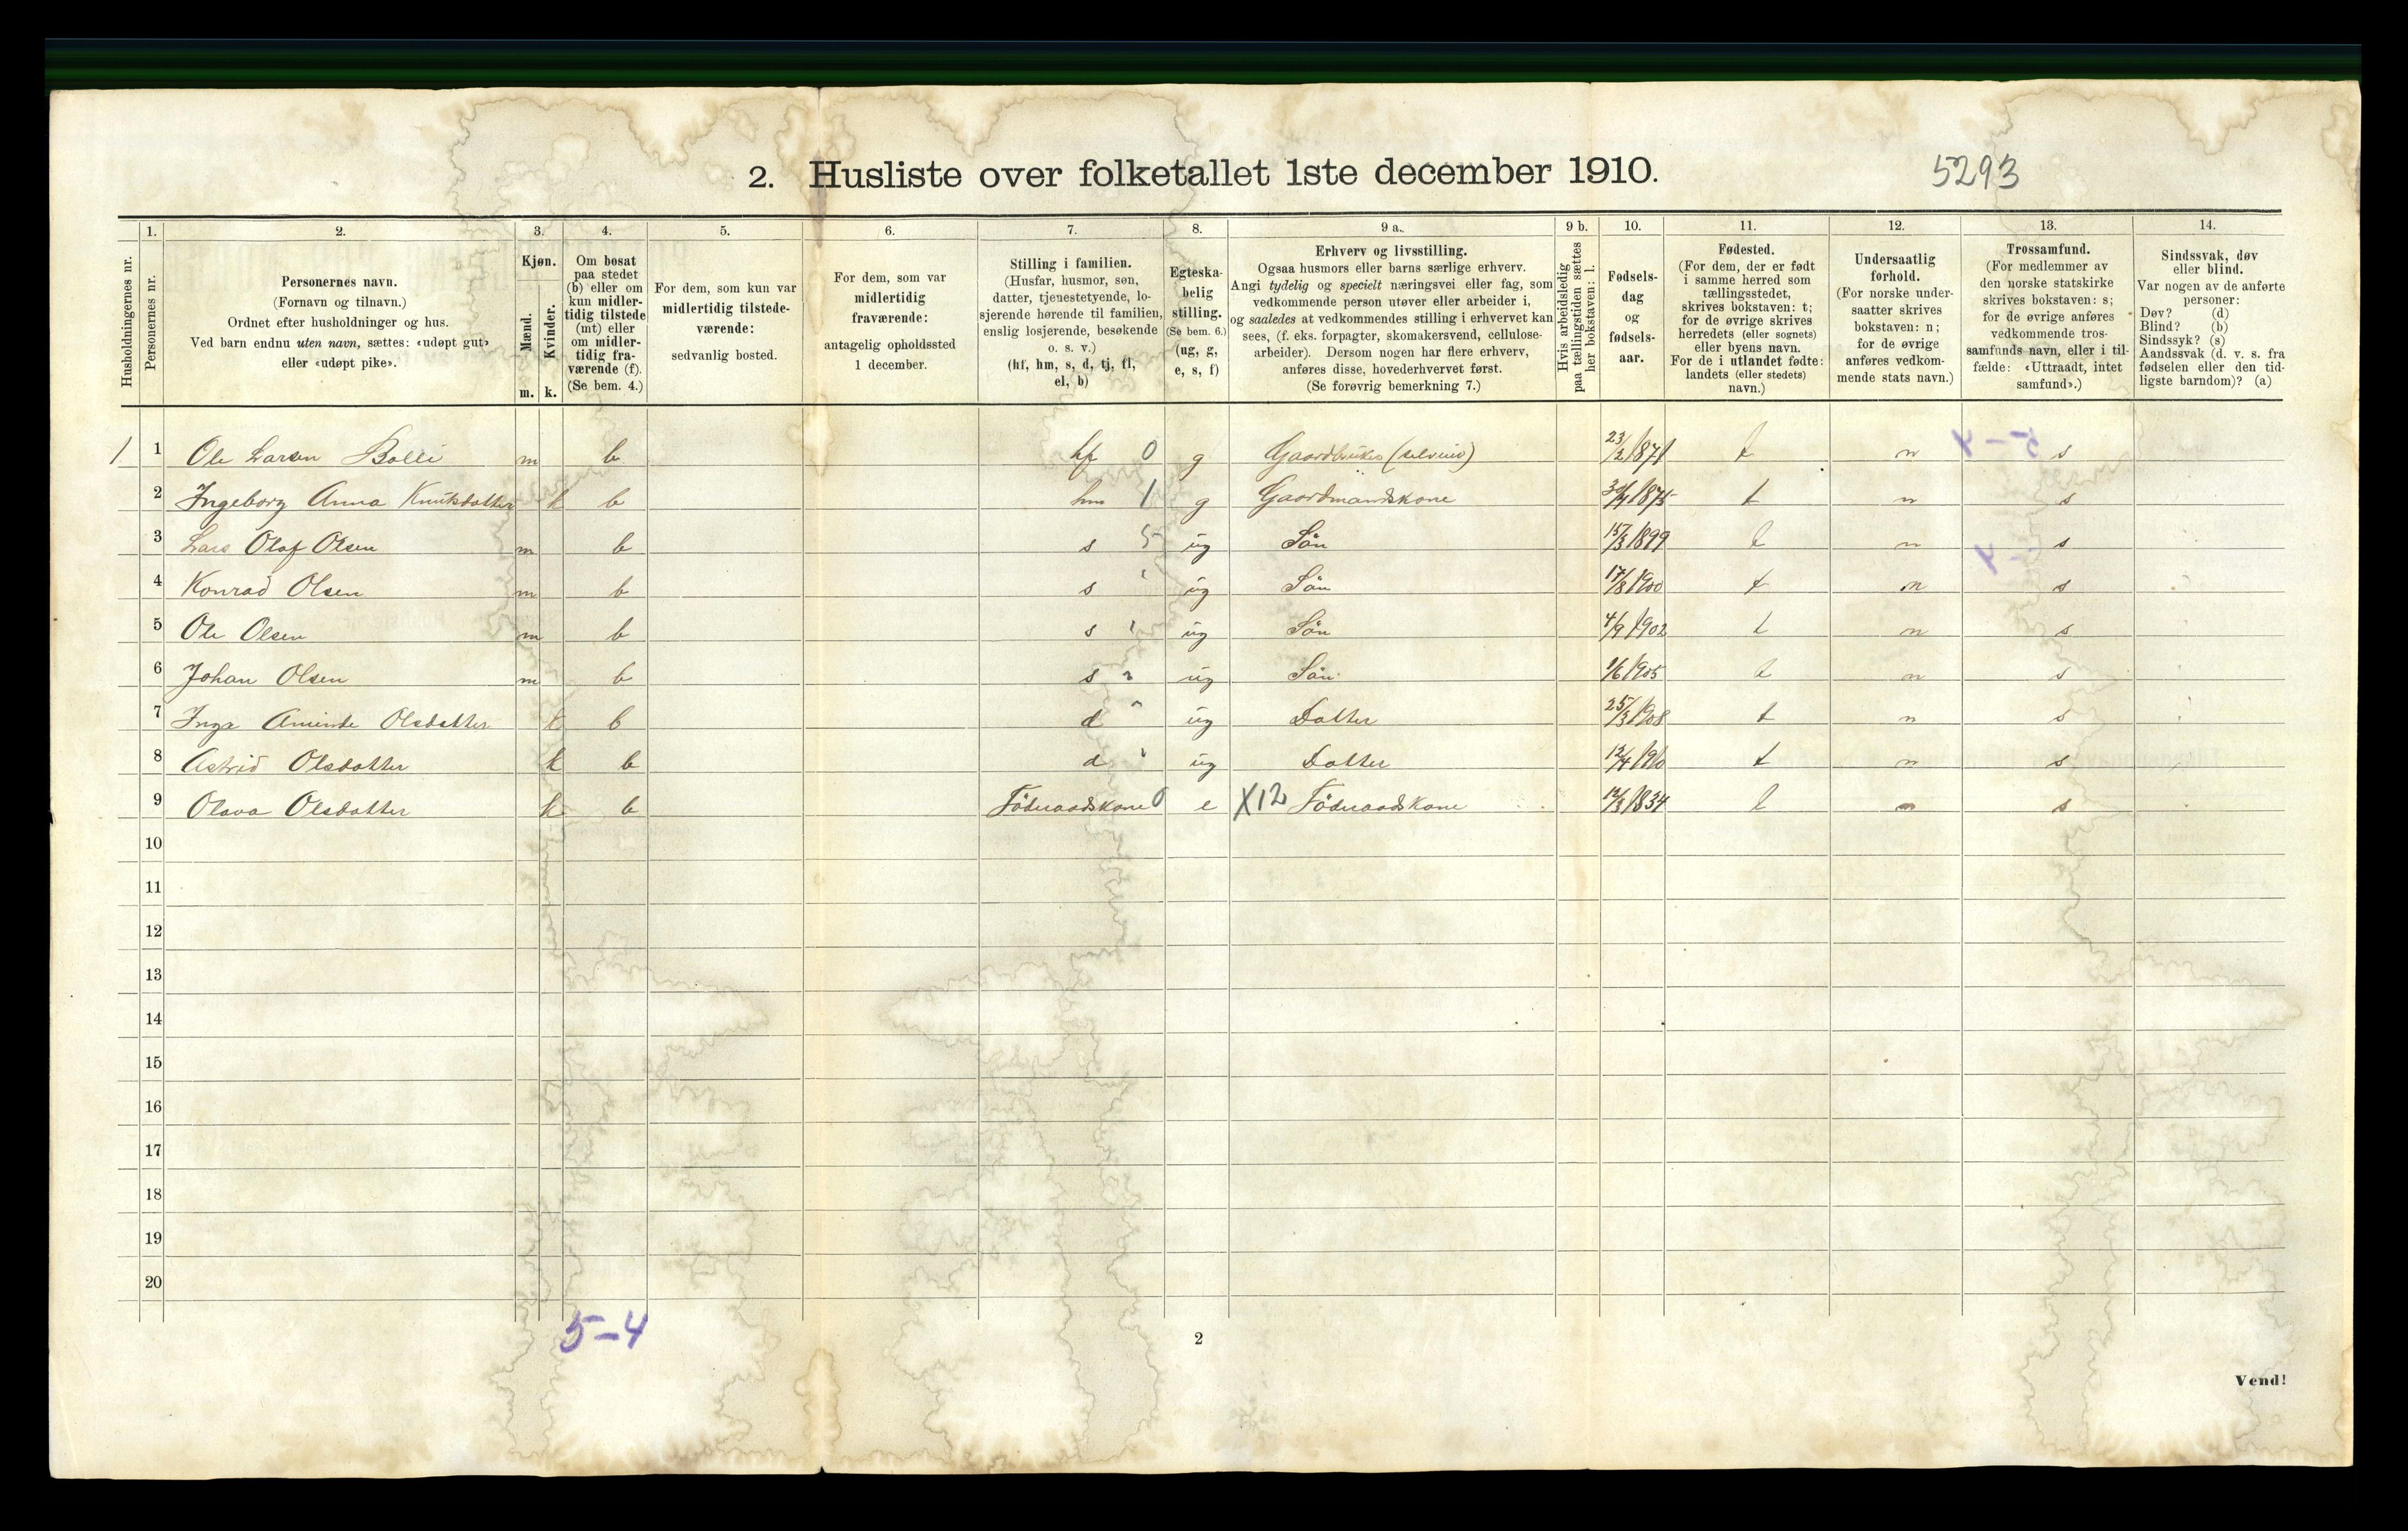 2. Husliste over folketallet 1ste december 1910.
5293
Husholdningernes nr.
1.
Personernes nr.
2.
Personernes navn.
(Fornavn og tilnavn.)
Ordnet efter husholdninger og hus.
Ved barn endnu uten navn, sættes: «udøpt gut»
eller «udøpt pike».
3.
Kjøn.
Mænd.
Kvinder.
m. k.
4.
Om bosat
paa stedet
(b) eller om
kun midler-
tidig tilstede
(mt) eller
om midler-
tidig fra-
værende (f).
(Se bem. 4.)
5.
For dem, som kun var
midlertidig tilstede-
værende:
sedvanlig bosted.
6.
For dem, som var
midlertidig
fraværende:
antagelig opholdssted
1 december.
7.
Stilling i familien.
(Husfar, husmor, søn,
datter, tjenestetyende, lo-
sjerende hørende til familien,
enslig losjerende, besøkende
o. s. v.)
(hf, hm, s, d, tj, fl,
el, b)
8.
Egteska-
belig
stilling.
(Se bem. 6.)
(ug, g,
e, s, f)
9 a.
Erhverv og livsstilling.
Ogsaa husmors eller barns særlige erhverv.
Angi tydelig og specielt næringsvei eller fag, som
vedkommende person utøver eller arbeider i,
og saaledes at vedkommendes stilling i erhvervet kan
sees, (f. eks. forpagter, skomakersvend, cellulose-
arbeider). Dersom nogen har flere erhverv,
anføres disse, hovederhvervet først.
(Se forøvrig bemerkning 7.)
9 b.
Hvis arbeidsledig
paa tællingstiden sættes
her bokstaven: l.
10.
Fødsels-
dag
og
fødsels-
aar.
11.
Fødested.
(For dem, der er født
i samme herred som
tællingsstedet,
skrives bokstaven: t;
for de øvrige skrives
herredets (eller sognets)
eller byens navn.
For de i utlandet fødte:
landets (eller stedets)
navn.)
12.
Undersaatlig
forhold.
(For norske under-
saatter skrives
bokstaven: n;
for de øvrige
anføres vedkom-
mende stats navn.)
13.
Trossamfund.
(For medlemmer av
den norske statskirke
skrives bokstaven: s;
for de øvrige anføres
vedkommende tros-
samfunds navn, eller i til-
fælde: «Uttraadt, intet
samfund».)
14.
Sindssvak, døv
eller blind.
Var nogen av de anførte
personer:
Døv? (d)
Blind? (b)
Sindssyk? (s)
Aandssvak (d. v. s. fra
fødselen eller den tid-
ligste barndom)? (a)
1 1 Ole Larsen Bolli m b hf 0 g Gaardbruker (selveier) 23/2 1871 t n s
2 Ingeborg Anna Knutsdatter k b hm 1 g Gaardmandskone 1875 t n s
3 Lars Olaf Olsen m b s 5 ug Sön 15/3 1899 t n s
4 Konrad Olsen m b s ug Sön 17/8 1900 t n s
5 Ole Olsen m b s ug Sön 4/9 1902 t n s
6 Johan Olsen m b s ug Sön 1/6 1905 t n s
7 Inga Aminde Olsdatter k b d ug Datter 25/3 1908 t n s
8 Astrid Olsdatter k b d ug Datter 12/4 1910 t n s
9 Olava Olsdatter k b Föderaadskone 0 e X12 Föderaadskone 12/3 1834 t n s
10
11
12
13
14
15
16
17
18
19
20
5-4
2
Vend!